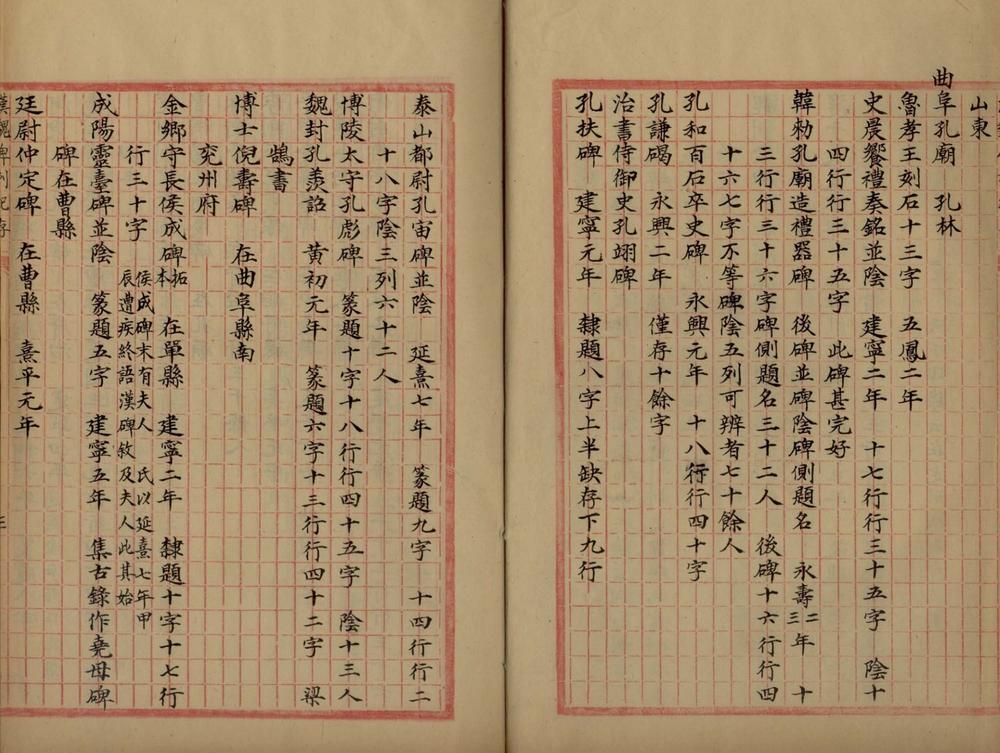 山東
曲阜孔廟　孔林
魯孝王刻石十三字　五鳳二年
史晨饗禮奏銘並陰　建寧二年　十七行行三十五字　陰十
四行行三十五字　此碑甚完好
韓勑孔廟造禮器碑　後碑並碑陰碑側題名　永壽二三年　十
三行行三十六字碑側題名三十二人　後碑十六行行四
十六七字不等碑陰五列可辨者七十餘人
孔和百石卒史碑　永興元年　十八行行四十字
孔謙碣　永興二年　僅存十餘字
治書侍御史孔翊碑
孔扶碑　建寧元年　隸題八字上半缺存下九行
泰山都尉孔宙碑並陰　延熹七年　篆題九字　十四行行二
十八字陰三列六十二人
博陵太守孔彪碑　篆題十字十八行行四十五字　陰十三人
魏封孔羨詔　黃初元年　篆題六字十三行行四十二字　梁
鵠書
博士倪壽碑　在曲阜縣南
兖州府
金鄉守長侯成碑　拓本　在單縣　建寧二年　隸題十字十七行
行三十字　侯成碑末有夫人　氏以延熹七年甲
辰遭疾終語漢碑敘及夫人此其始
成陽靈臺碑並陰　篆題五字　建寧五年　集古錄作堯母碑
碑在曹縣
廷尉仲定碑　在曹縣　熹平元年